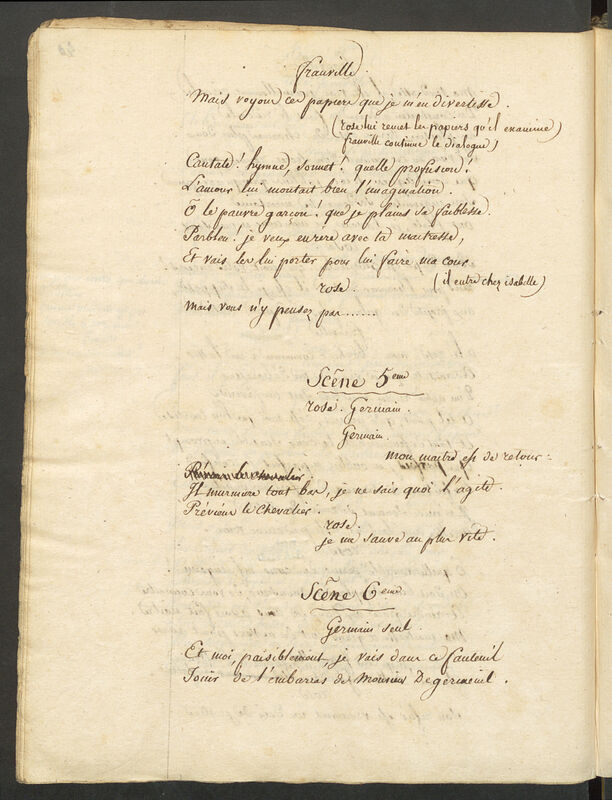 frauville
Mais voyons ces papiers que je m'en divertisse.
(rose lui remet les papiers qu'il examine)
frauville continue le dialogue)
Cantate! hymne, sonnet! quelle profusion!
L'amour lui montait bien l'imagination.
Ô le pauvre garçon! que je plains sa faiblesse.
Parbleu! je veux en rire avec ta maitresse,
Et vais les lui porter pour lui faire ma cour
(il entre chez isabelle)
rose.
Mais vous n'y pensez pas......
Scène 5eme
rose. Germain.
Germain.
mon maitre est de retour:
Il murmure tout bas, je ne sais quoi l'agite.
Préviens le Chevalier.
rose.
je me sauve au plus vite.
Scène 6eme
Germain seul.
Et moi, paisiblement, je vais dans ce fauteuil
Jouir de l'embarras de Monsieur Degermeuil.